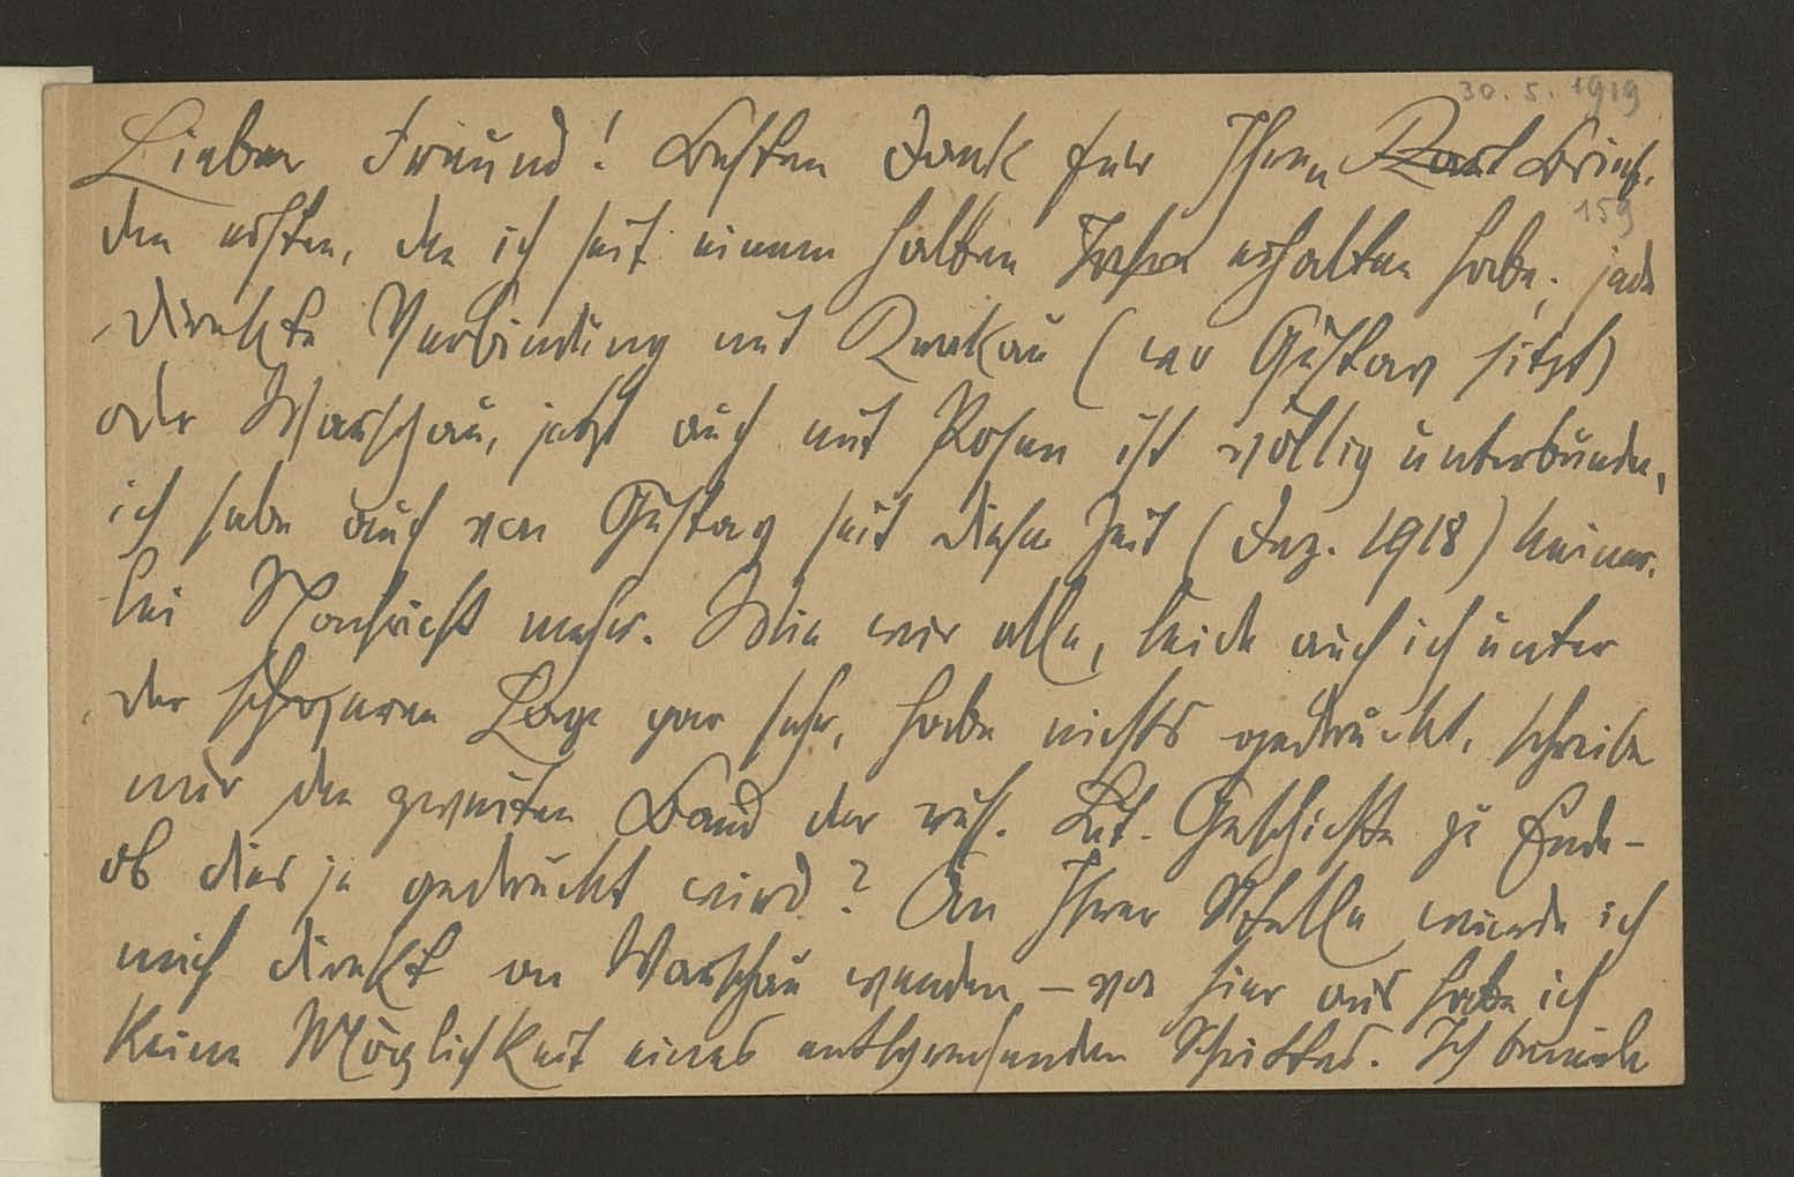 30. 5. 1919
Lieber Freund! Besten Dank für Ihren Brief,
159
den ersten, den ich seit einem halben Jahre erhalten habe; jede
direkte Verbindung mit Krakau (wo Gustav sitzt)
oder Warschau, jetzt auch mit Posen ist völlig unterbunden,
ich habe auch von Gustav seit dieser Zeit (Dez. 1918) keiner-
lei Nachricht mehr. Wie wir alle, leide auch ich unter
der schweren Lage gar sehr, habe nichts gedruckt, schreibe
nur den zweiten Band der russ. Lit. Geschichte zu Ende –
ob dies je gedruckt wird? An Ihrer Stelle würde ich
mich direkt an Warschau wenden – von hier aus habe ich
keine Möglichkeit eines entsprechenden Schrittes. Ich